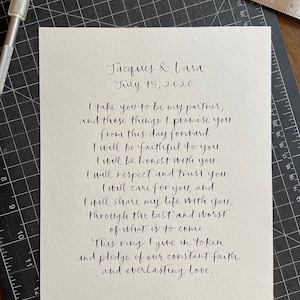 Jacques & Lara
July 15, 2020
I take you to be my partner,
and those things I promise you
from this day forward.
I will be faithful to you.
I will be honest with you.
I will respect and trust you.
I will care for you, and
I will share my life with you,
through the best and worst
of what is to come.
This ring I give in token
and pledge of our constant faith
and everlasting love.